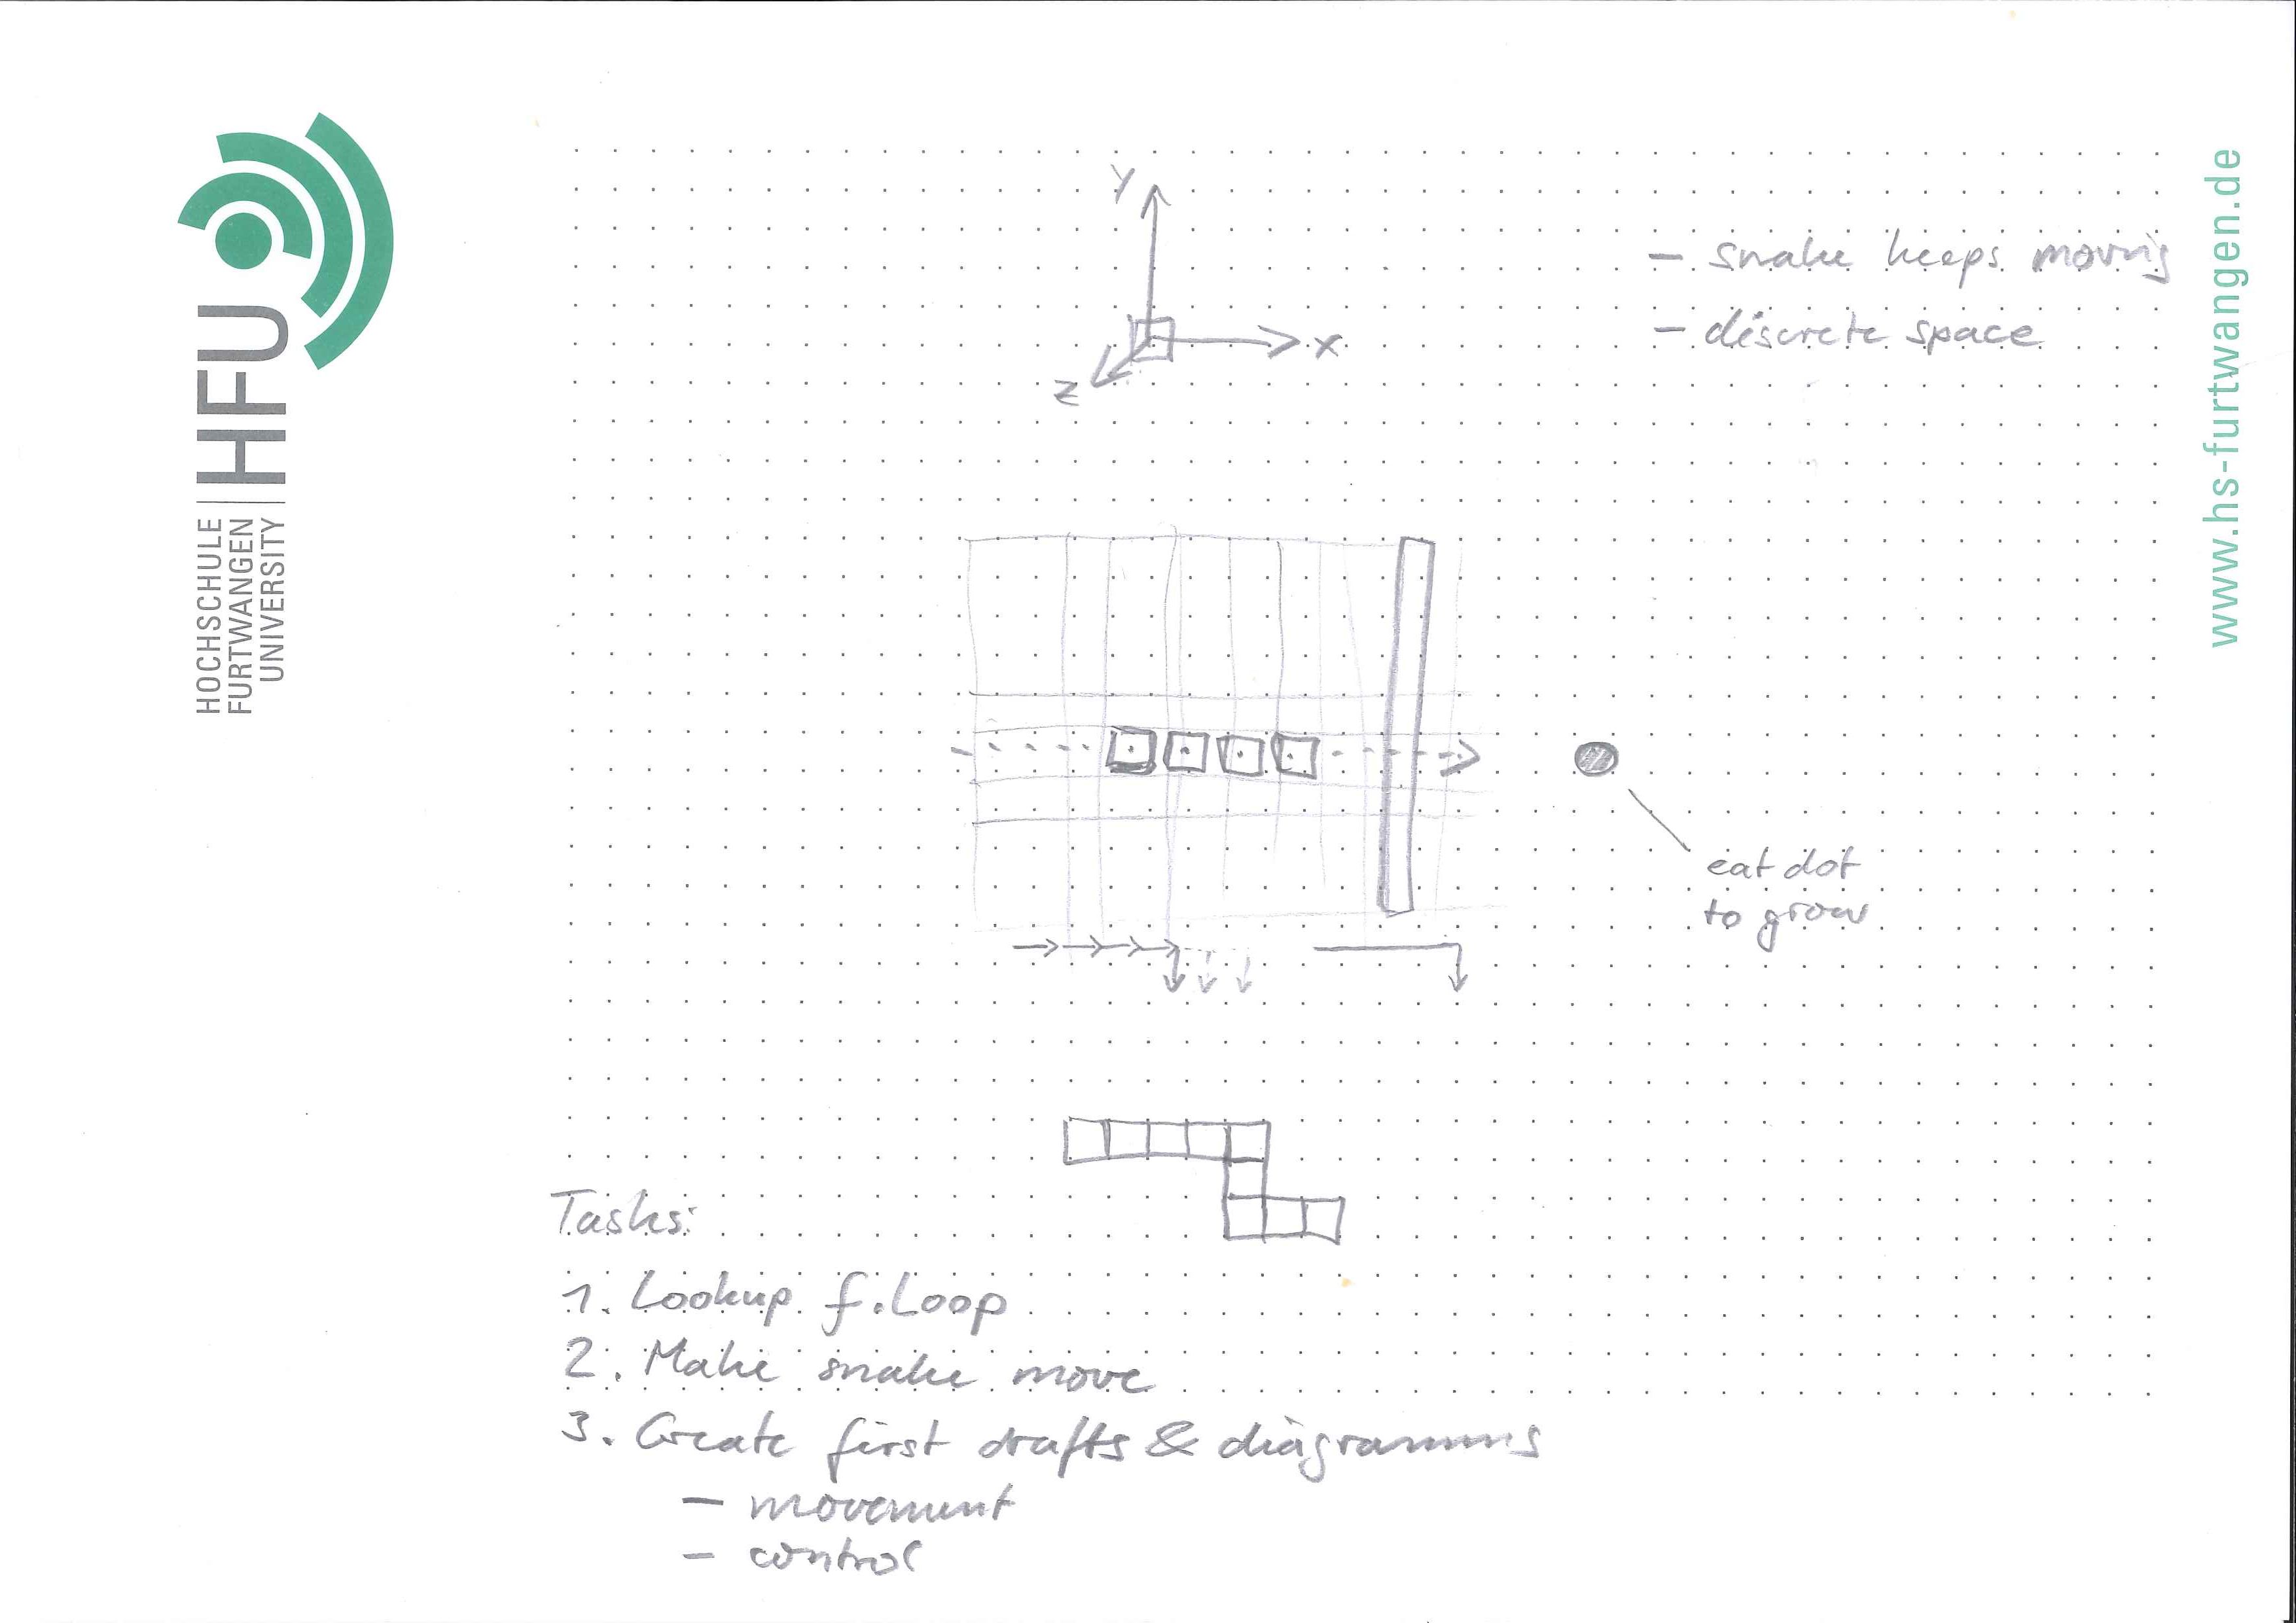 HOCHSCHULE
FURTWANGEN
UNIVERSITY
HFU
www.hs-furtwangen.de
Y
X
Z
- snake keeps moving
- discrete space
eat dot
to grow
Tasks:
1. Lookup f.Loop
2. Make snake move
3. Create first drafts & diagramms
- movement
- control